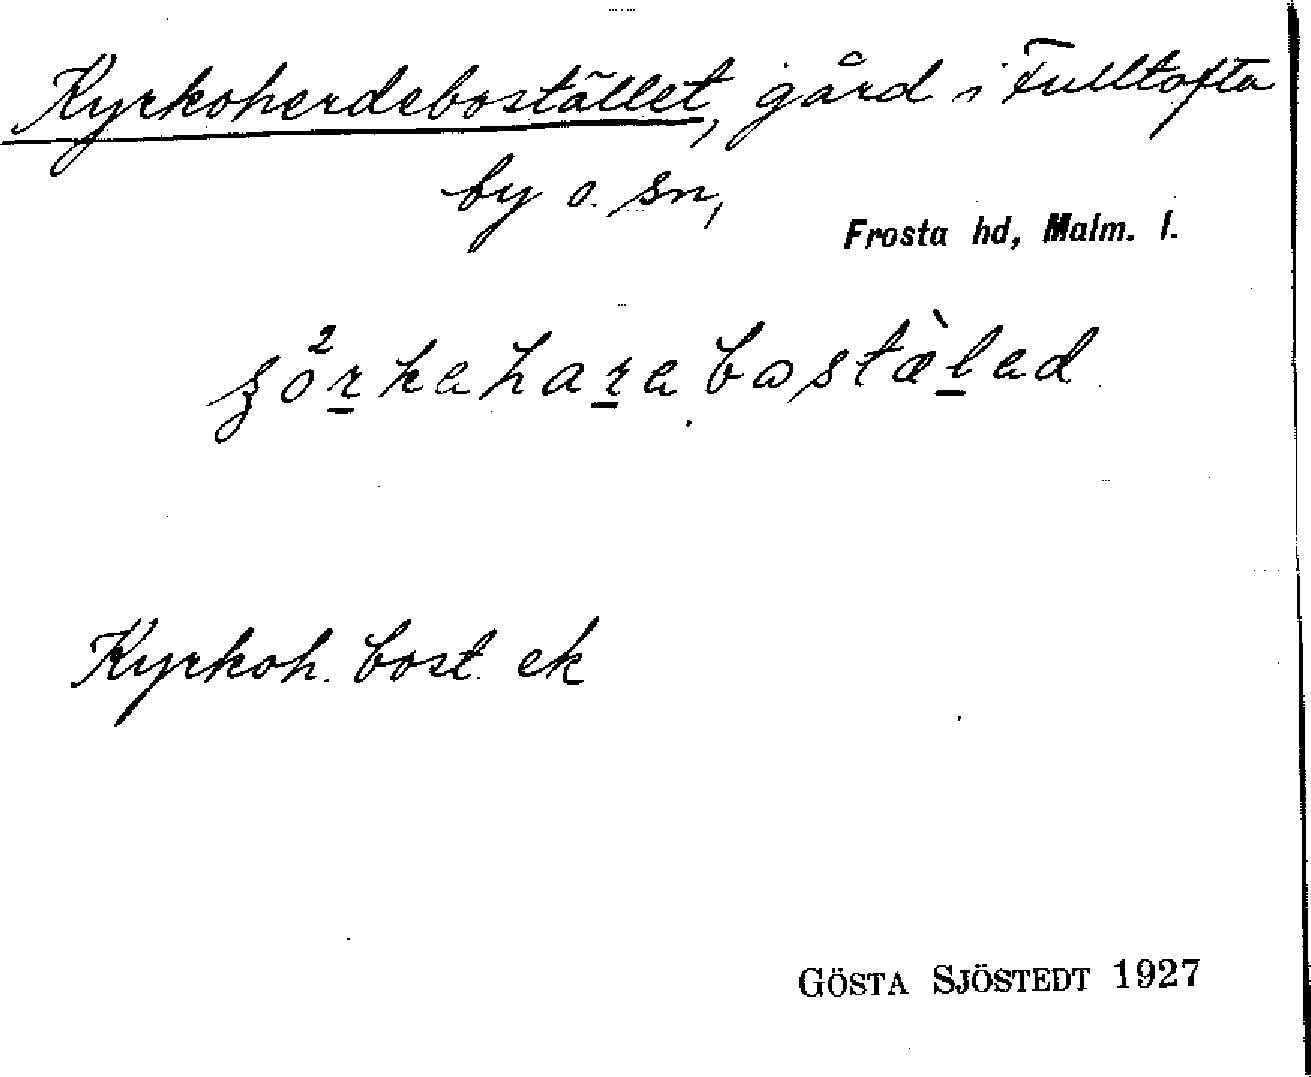 Kyrkoherdebostället, gård i Fulltofta
by o. sn,
Frosta hd, Malm. l.
Kyrkoh. bost. ek
GÖSTA SJÖSTEDT 1927